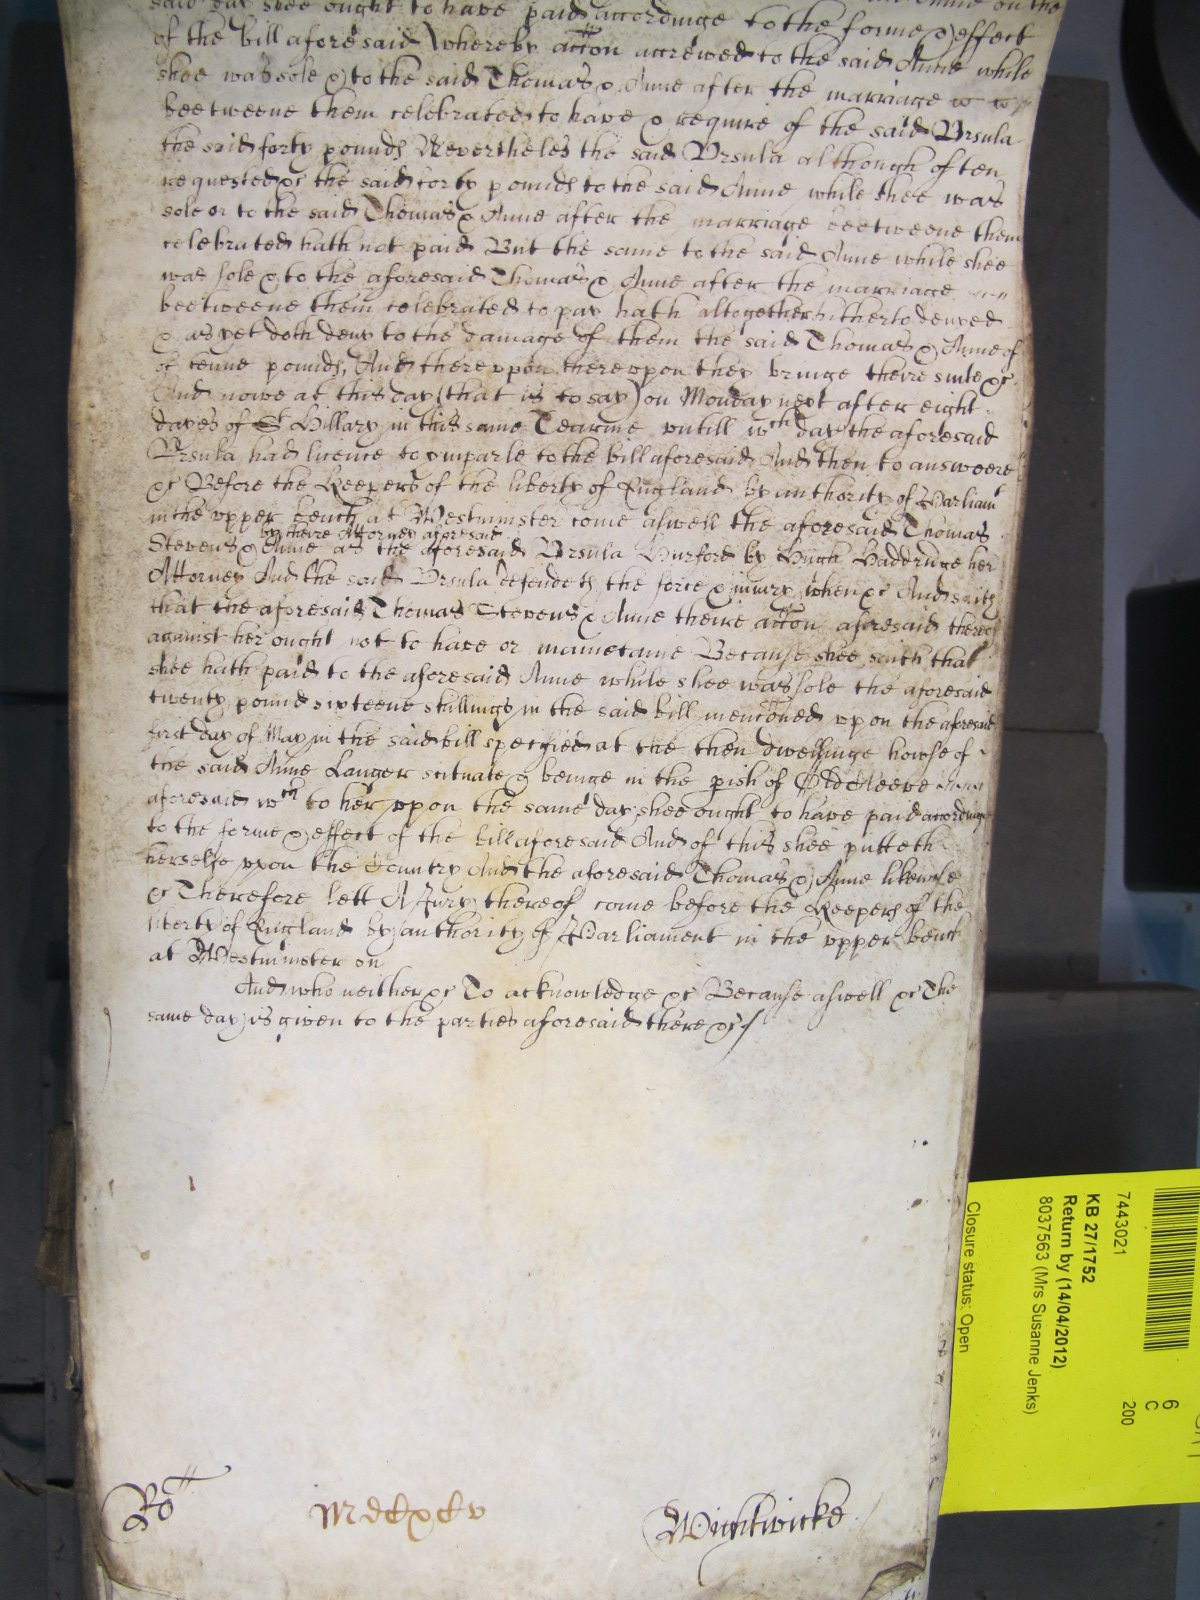 said day shee ought to have paid accordinge to the forme & effect
of the bill aforesaid whereby accon accrewed to the said Anne while
shee was sole & to the said Thomas & Anne after the marriage
beetweene them celebrated to have & require of the said Ursula
the said forty pounds Nevertheles the said Ursula although often
requested &c the said forty pounds to the said Anne while shee was
sole or to the said Thomas & Anne after the marriage beetweene them
celebrated hath not paid But the same to the said Anne while shee
was sole & to the aforesaid Thomas & Anne after the marriage
beetweene them celebrated to pay hath altogether hitherto denyed
& as yet doth deny to the damage of them the said Thomas & Anne of
of tenne pounds, And thereupon thereupon they bringe theire suite &c
And nowe at this day (that is to say) on Monday next after eight
dayes of St Hillary in this same Tearme untill wch day the aforesaid
Ursula had licence to imparle to the bill aforesaid And then to answeere
&c Before the Keepers of the liberty of England by authority of Parliamt
in the upper bench at Westminster come aswell the aforesaid Thomas
by theire Attorney aforesaid
Stevens & Anne as the aforesaid Ursula Hurford by Hugh Hadderuge her
Attorney And the said Ursula defendeth the force & injury when &c And saith
that the aforesaid Thomas Stevens & Anne theire accon aforesaid thereof
against her ought not to have or mainetaine Because shee saith that
shee hath paid to the aforesaid Anne while shee was sole the aforesaid
twenty pound sixteene shillings in the said bill menconed upon the aforesaid
first day of May in the said bill specyfied at the then dwellinge howse of
the said Anne Langer scituate & beinge in the pish of Old Cleeve
aforesaid wch to her upon the same day shee ought to have paid accordinge
to the forme & effect of the bill aforesaid And of this shee putteth
herselfe upon the Country And the aforesaid Thomas & Anne likewise
&c Therefore lett A Jury thereof come before the Keepers of the
liberty of England by authority of Parliament in the upper bench
at Westminster on
And who neither &c To acknowledge &c Because aswell &c The
same day is given to the parties aforesaid there &c
Ro
Mdclxxxv
Wightwicke
7443021
KB 27/1752
Return by (14/04/2012)
8037563 (Mrs Susanne Jenks)
Closure status: Open
6
C
200